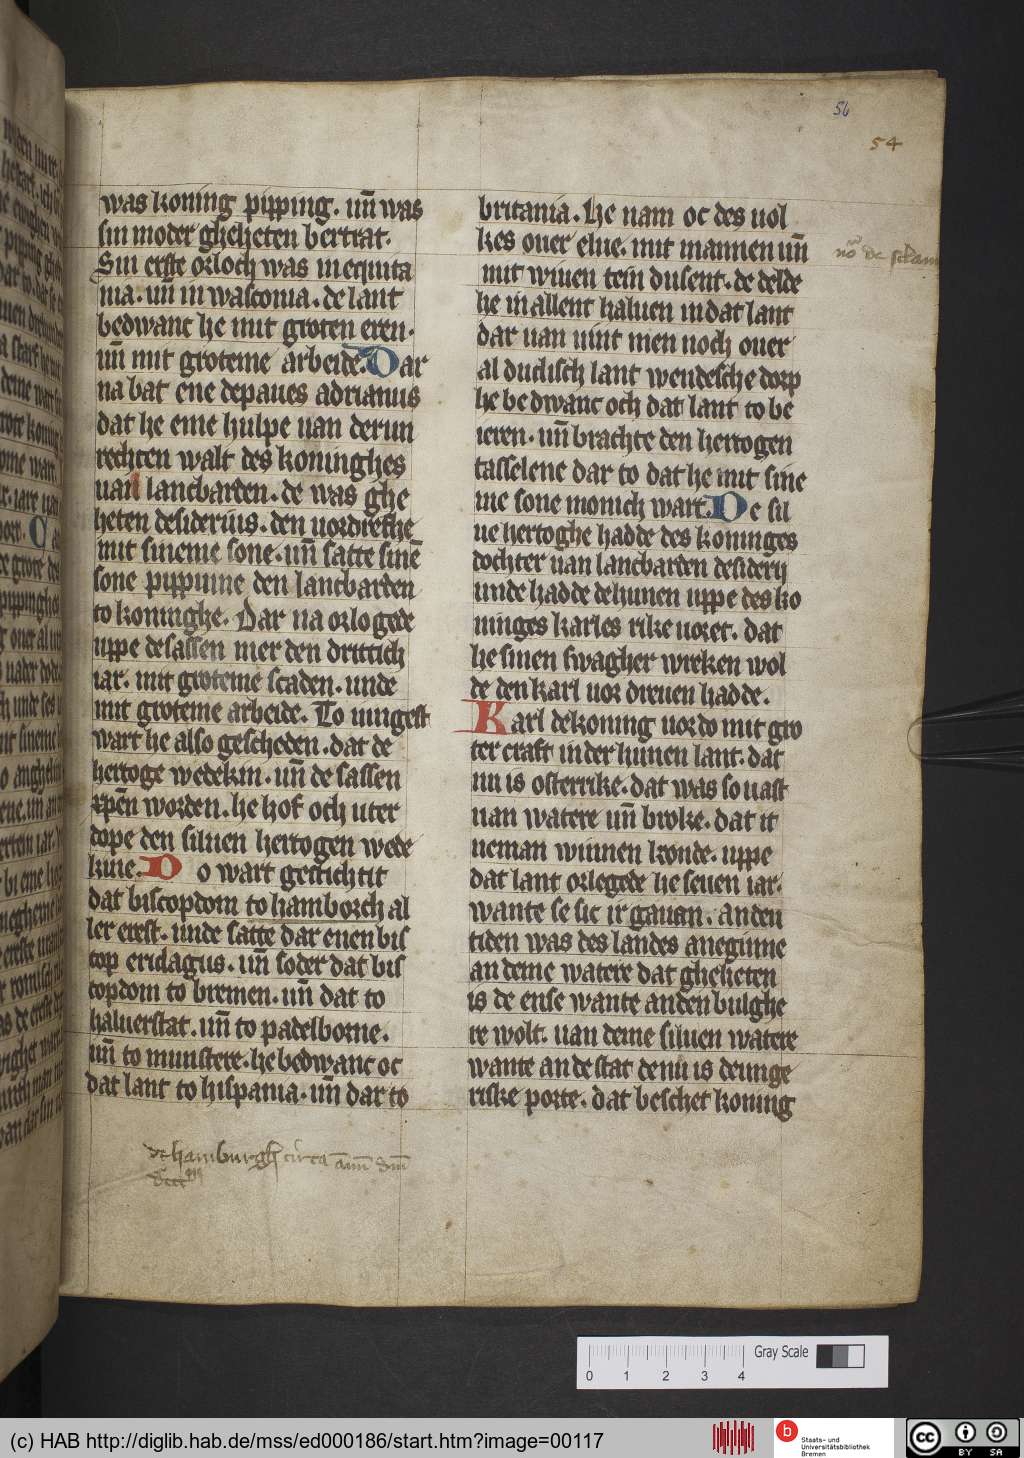 56
54
was koning pipping. uñ was
sin moder gheheten bertrat.
Sin erste orloch was in equita
nia. uñ in wasconia. de lant
bedwanc he mit groten eren.
uñ mit groteme arbeide. Dar
na bat ene de paues adrianus
dat he eme hulpe uan der un
rechten walt des koninghes
uan lancbarden. de was ghe
heten desiderius. den uordrefhe
mit sineme sone. uñ satte sinē
sone pippinne den lancbarden
to koninghe. Dar na orlogede
uppe de sassen mer den drittich
iar. mit groteme scaden. unde
mit groteme arbeide. To iungest
wart he also gescheden. dat de
hertoge wedekin. uñ de sassen
xpen worden. he hof och uter
dope den siluen hertogen wede
kine. Do wart gestichtit
dat biscopdom to hamborch al
ler erest. unde satte dar enen bis
cop eridagus. uñ soder dat bis
copdom to bremen. uñ dat to
haluerstat. uñ to padelborne.
uñ to munstere. he bedwanc oc
dat lant to hispania. uñ dar to
de hamburgh circa annū dm̄
britania. He nam oc des uol
kes ouer elue. mit mannen uñ
mit wiuen tein dusent. de delde
he in allent haluen in dat lant
dar uan uint men noch ouer
al dudisch lant wendesche dorp
he bedwanc och dat lant to be
ieren. uñ brachte den hertogen
tasselene dar to dat he mit sine
me sone monich wart. De sil
ue hertoghe hadde des koninges
dochter uan lancbarden desiderij
unde hadde de hunen uppe des ko
ninges karles rike uoret. dat
he sinen swagher wreken wol
de den karl uor dreuen hadde.
Karl de koning uor do mit gro
ter craft in der hunen lant. dat
nu is osterrike. dat was so uast
uan watere uñ broke. dat it
neman winnen konde. uppe
dat lant orlegede he seuen iar.
wante se sic ir gauan. an den
tiden was des landes aneginne
an deme watere dat gheheten
is de ense wante an den bulghe
re wolt. uan deme siluen watere
wante an de stat de nu is de unge
riske porte. dat beschet koning
Gray Scale
0 1 2 3 4
(c) HAB http://diglib.hab.de/mss/ed000186/start.htm?image=00117
b
Staats- und
Universitätsbibliothek
Bremen
cc
BY SA